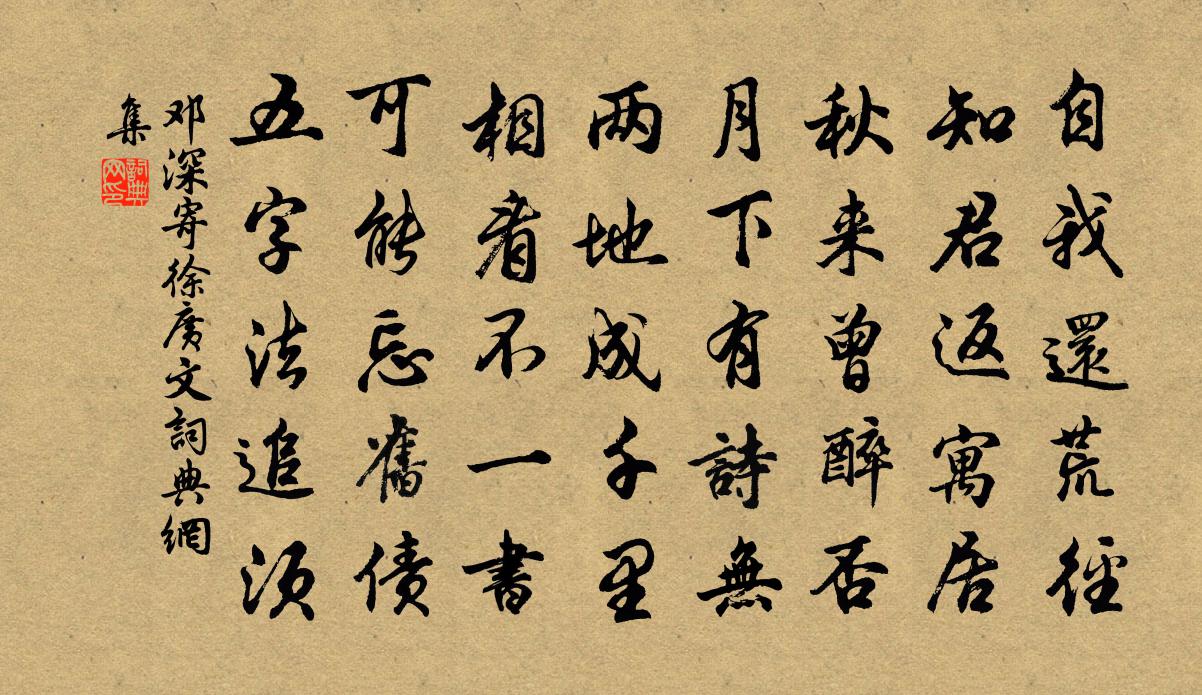 自我還荒徑
知君返寓居
秋来曾醉否
月下有詩無
两地成千里
相看不一書
可能忘舊債
五字法追須
邓深寄徐廣文詞典網
集
詞典
网印